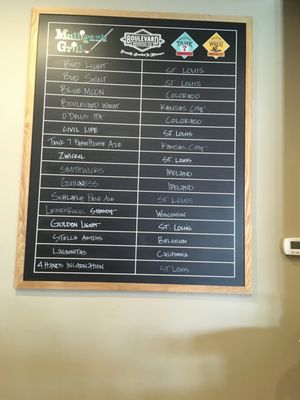 Mulligan's Grill
BOULEVARD
TANK 7
WHEAT
BUD LIGHT ST. LOUIS
BUD SELECT ST. LOUIS
BLUE MOON COLORADO
BOULEVARD WHEAT KANSAS CITY
O'DELLS IPA COLORADO
CIVIL LIFE ST. LOUIS
TANK 7 FARMHOUSE ALE KANSAS CITY
ZWICKEL ST. LOUIS
SMITHWICKS IRELAND
GUINNESS IRELAND
SCHLAFLY PALE ALE ST LOUIS
LEINENKUGEL SHANDY WISCONSIN
GOLDEN LIGHT ST. LOUIS
STELLA ARTOIS BELGIUM
LAGUNITAS CALIFORNIA
4 HANDS INCARNATION ST. LOUIS